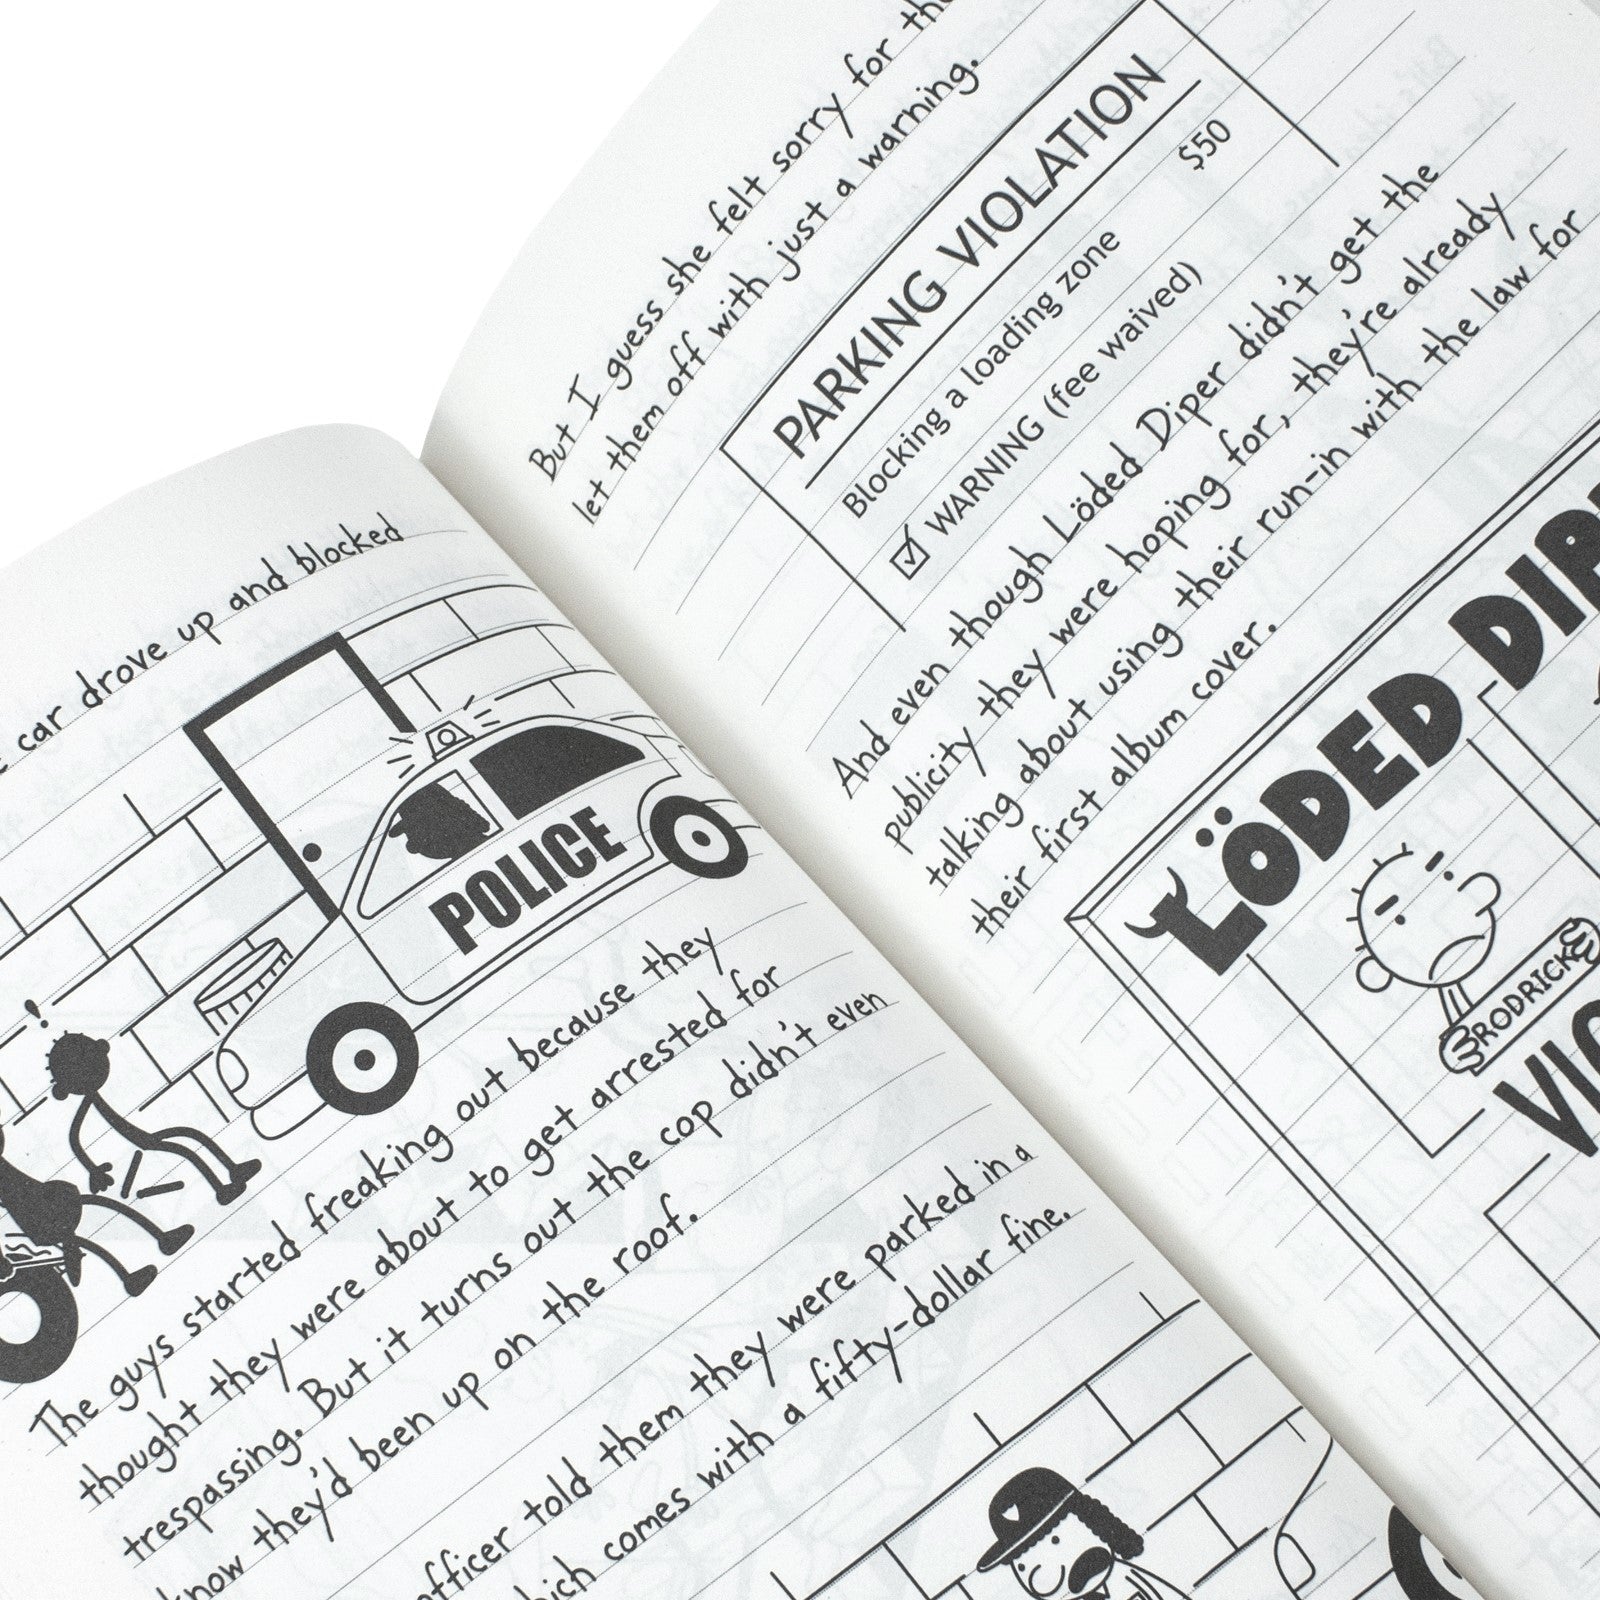 car drove up and blocked
POLICE
!
The guys started freaking out because they
thought they were about to get arrested for
trespassing. But it turns out the cop didn't even
know they'd been up on the roof.
officer told them they were parked in a
which comes with a fifty-dollar fine.
But I guess she felt sorry for
let them off with just a warning.
PARKING VIOLATION
$50
Blocking a loading zone
☑ WARNING (fee waived)
And even though Löded Diper didn't get the
publicity they were hoping for, they're already
talking about using their run-in with the law for
their first album cover.
LÖDED DIP
RODRICK
VIO